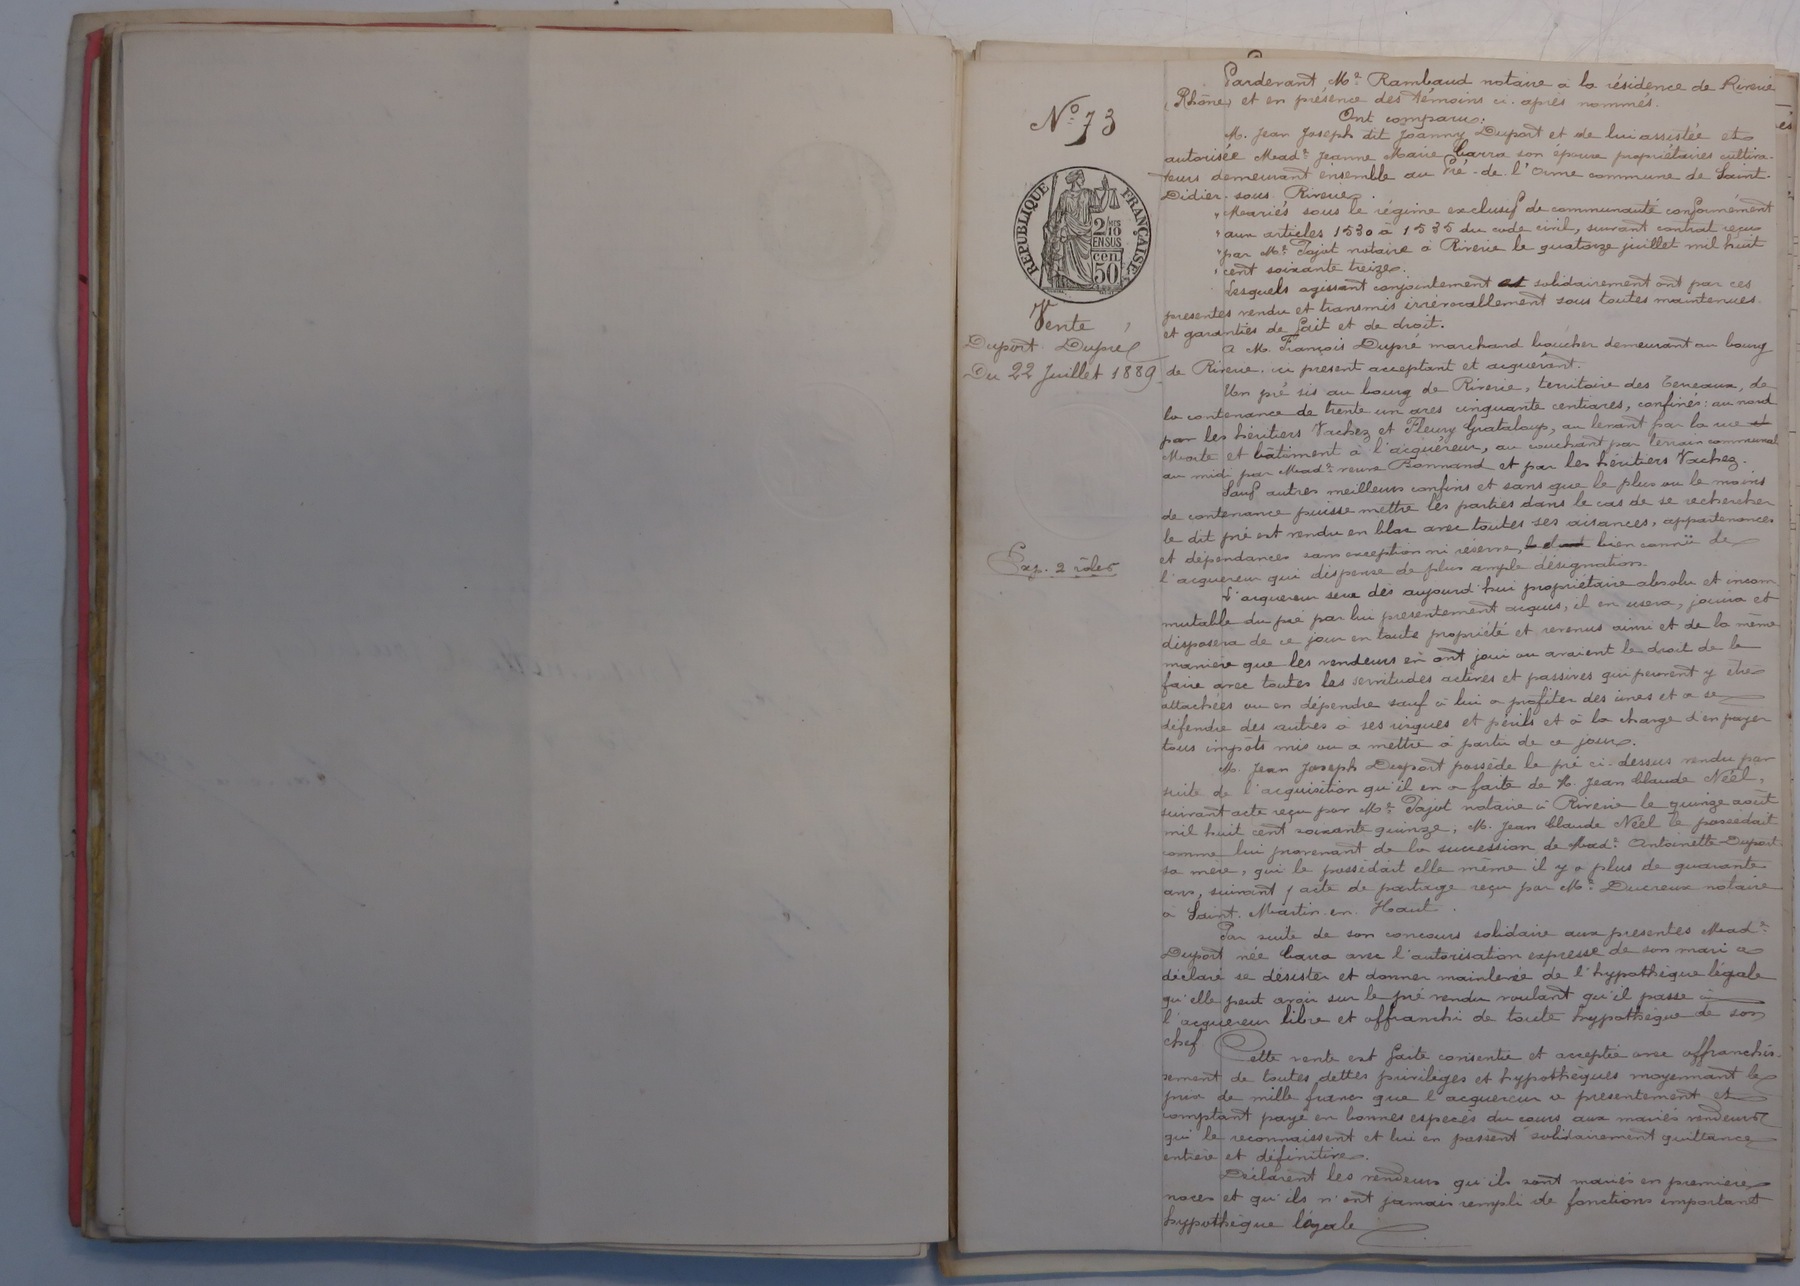 N° 73
RÉPUBLIQUE FRANÇAISE
2/10 EN SUS
cen. 50
Vente
Duport Dupré
Du 22 Juillet 1889
Exp. 2 rôles
Pardevant Me Rambaud notaire à la résidence de Riverie
(Rhône) et en présence des témoins ci-après nommés.
Ont comparu:
M. Jean Joseph dit Joanny Duport et de lui assistée et
autorisée Made Jeanne Marie Carra son épouse propriétaires cultiva-
teurs demeurant ensemble au Pré-de-l'Orme commune de Saint-
Didier-sous-Riverie.
Mariés sous le régime exclusif de communauté conformément
aux articles 1530 à 1535 du code civil, suivant contrat reçu
par Me Pajot notaire à Riverie le quatorze juillet mil huit
cent soixante treize.
Lesquels agissant conjointement et solidairement ont par ces
présentes vendu et transmis irrévocablement sous toutes maintenues
et garanties de fait et de droit.
A M. François Dupré marchand boucher demeurant au bourg
de Riverie, ici présent acceptant et acquérant.
Un pré sis au bourg de Riverie, territoire des Terreaux, de
la contenance de trente un ares cinquante centiares, confinés: au nord
par les héritiers Vachez et Fleury Grataloup, au levant par la rue
Morte et bâtiment à l'acquéreur, au couchant par terrain communal
au midi par Made veuve Bonnand et par les héritiers Vachez.
Sauf autres meilleurs confins et sans que le plus ou le moins
de contenance puisse mettre les parties dans le cas de se rechercher
le dit pré est vendu en bloc avec toutes ses aisances, appartenances
et dépendances sans exception ni réserve, bien connu de
l'acquéreur qui dispense de plus ample désignation.
L'acquéreur sera dès aujourd'hui propriétaire absolu et incom
mutable du pré par lui présentement acquis, il en usera, jouira et
disposera de ce jour en toute propriété et revenus ainsi et de la même
manière que les vendeurs en ont joui ou avaient le droit de le
faire avec toutes les servitudes actives et passives qui peuvent y être
attachées ou en dépendre sauf à lui a profiter des unes et a se
défendre des autres à ses risques et périls et à la charge d'en payer
tous impôts mis ou a mettre à partir de ce jour.
M. Jean Joseph Duport possède le pré ci-dessus vendu par
suite de l'acquisition qu'il en a faite de M. Jean Claude Néel,
suivant acte reçu par Me Pajot notaire à Riverie le quinze août
mil huit cent soixante quinze, M. Jean Claude Néel le possédait
comme lui provenant de la succession de Made Antoinette Duport
sa mère, qui le possédait elle même il y a plus de quarante
ans, suivant acte de partage reçu par Me Ducreux notaire
à Saint-Martin-en-Haut.
Par suite de son concours solidaire aux présentes Made
Duport née Carra avec l'autorisation expresse de son mari a
déclaré se désister et donner mainlevée de l'hypothèque légale
qu'elle peut avoir sur le pré vendu voulant qu'il passe à
l'acquéreur libre et affranchi de toute hypothèque de son
chef.
Cette vente est faite consentie et acceptée avec affranchis-
sement de toutes dettes privilèges et hypothèques moyennant le
prix de mille francs que l'acquéreur a présentement et
comptant payé en bonnes espèces du cours aux mariés vendeurs
qui le reconnaissent et lui en passent solidairement quittance
entière et définitive.
Déclarent les vendeurs qu'ils sont mariés en première
noces et qu'ils n'ont jamais rempli de fonctions important
hypothèque légale